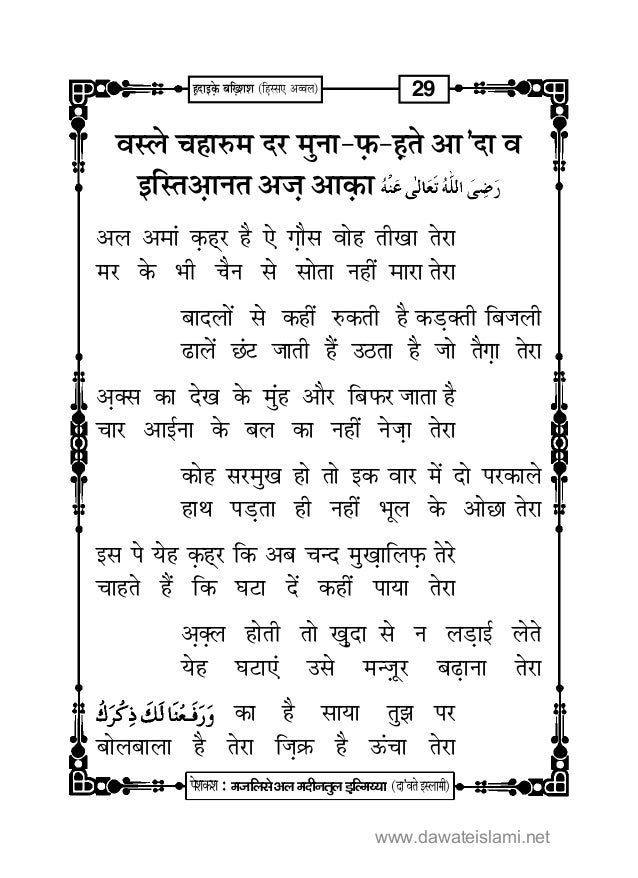 हदाइके़ बख़्शिश (हिस्सए अव्वल)
29
वस्ले चहारुम दर मुना-फ़-ह़ते आ'दा व
इस्तिआ़नत अज़ आक़ा رَضِىَ اللّٰهُ تَعَالٰى عَنْهُ
अल अमां क़ह्र है ऐ ग़ौस वोह तीखा तेरा
मर के भी चैन से सोता नहीं मारा तेरा
बादलों से कहीं रुकती है कड़क्ती बिजली
ढालें छंट जाती हैं उठता है जो तैग़ा तेरा
अ़क्स का देख के मुंह और बिफर जाता है
चार आईना के बल का नहीं नेज़ा तेरा
कोह सरमुख हो तो इक वार में दो परकाले
हाथ पड़ता ही नहीं भूल के ओछा तेरा
इस पे येह क़ह्र कि अब चन्द मुख़ालिफ़ तेरे
चाहते हैं कि घटा दें कहीं पाया तेरा
अ़क़्ल होती तो ख़ुदा से न लड़ाई लेते
येह घटाएं उसे मन्ज़ूर बढ़ाना तेरा
وَرَفَعْنَا لَكَ ذِكْرَكَ का है साया तुझ पर
बोलबाला है तेरा ज़िक्र है ऊंचा तेरा
पेशकश : मजलिसे अल मदीनतुल इल्मिय्या (दा'वते इस्लामी)
www.dawateislami.net